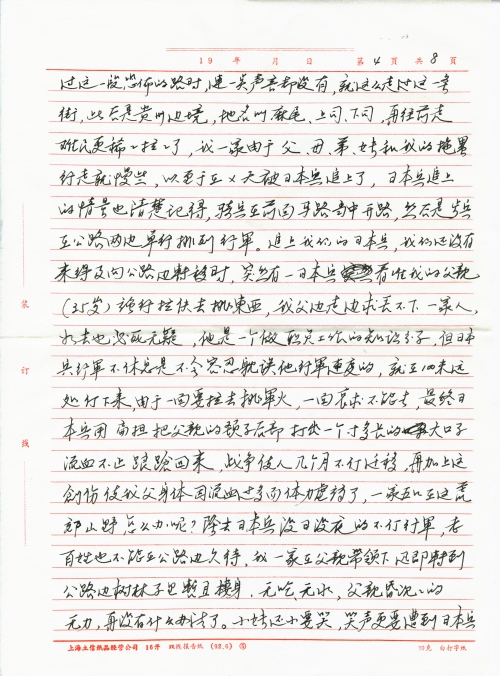 19 年 月 日 第 4 页 共 8 页
过这一段恐怖的路时，连一点声音都没有，就这么走过这一条
街，此后是贵州边境，地名叫麻尾、上司、下司，再往前走
难民更稀稀拉拉了，我一家由于父、母、弟、妹和我的拖累
行走就慢些，以至于在 X 天被日本兵追上了，日本兵追上
的情景也清楚记得，骑兵在前面马路当中开路，然后是步兵
在公路两边单行排列行军。追上我们的日本兵，我们还没有
来得及向公路边转移时，突然有一日本兵看准我的父亲
（35岁）强行拉伕去挑东西，我父边走边求丢不下一家人，
如去也必死无疑，他是一个做职员工作的知识分子，但日本
兵行军不休息是不会容忍耽误他行军速度的，就在100来米远
处停下来，由于一面要拉去挑军火，一面哀求不能去，最终日
本兵用扁担把父亲的颈子后部打出一个寸多长的大口子
流血不止踉跄回来，战争使人几个月不停迁移，再加上这
创伤使我父身体因流血过多而体力虚弱了，一家五口在这荒
郊山野怎么办呢？除去日本兵没日没夜的不停行军，老
百姓也不能在公路边久待，我一家在父亲带领下迅即转到
公路边树林子里暂且栖身，无吃无水，父亲昏沉沉的
无力，再没有什么办法了。小妹还小要哭，哭声更要遭到日本兵
装
订
线
上海立信纸品经营公司 16开 现线报告纸 (92.6) ⑤ 70克 白打字纸